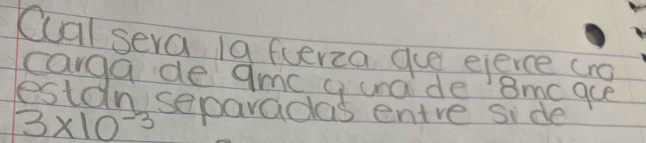 Cual sera la fuerza que ejerce una
carga de 9mc y una de 8mc que
estan separadas entre si de
3x10⁻³